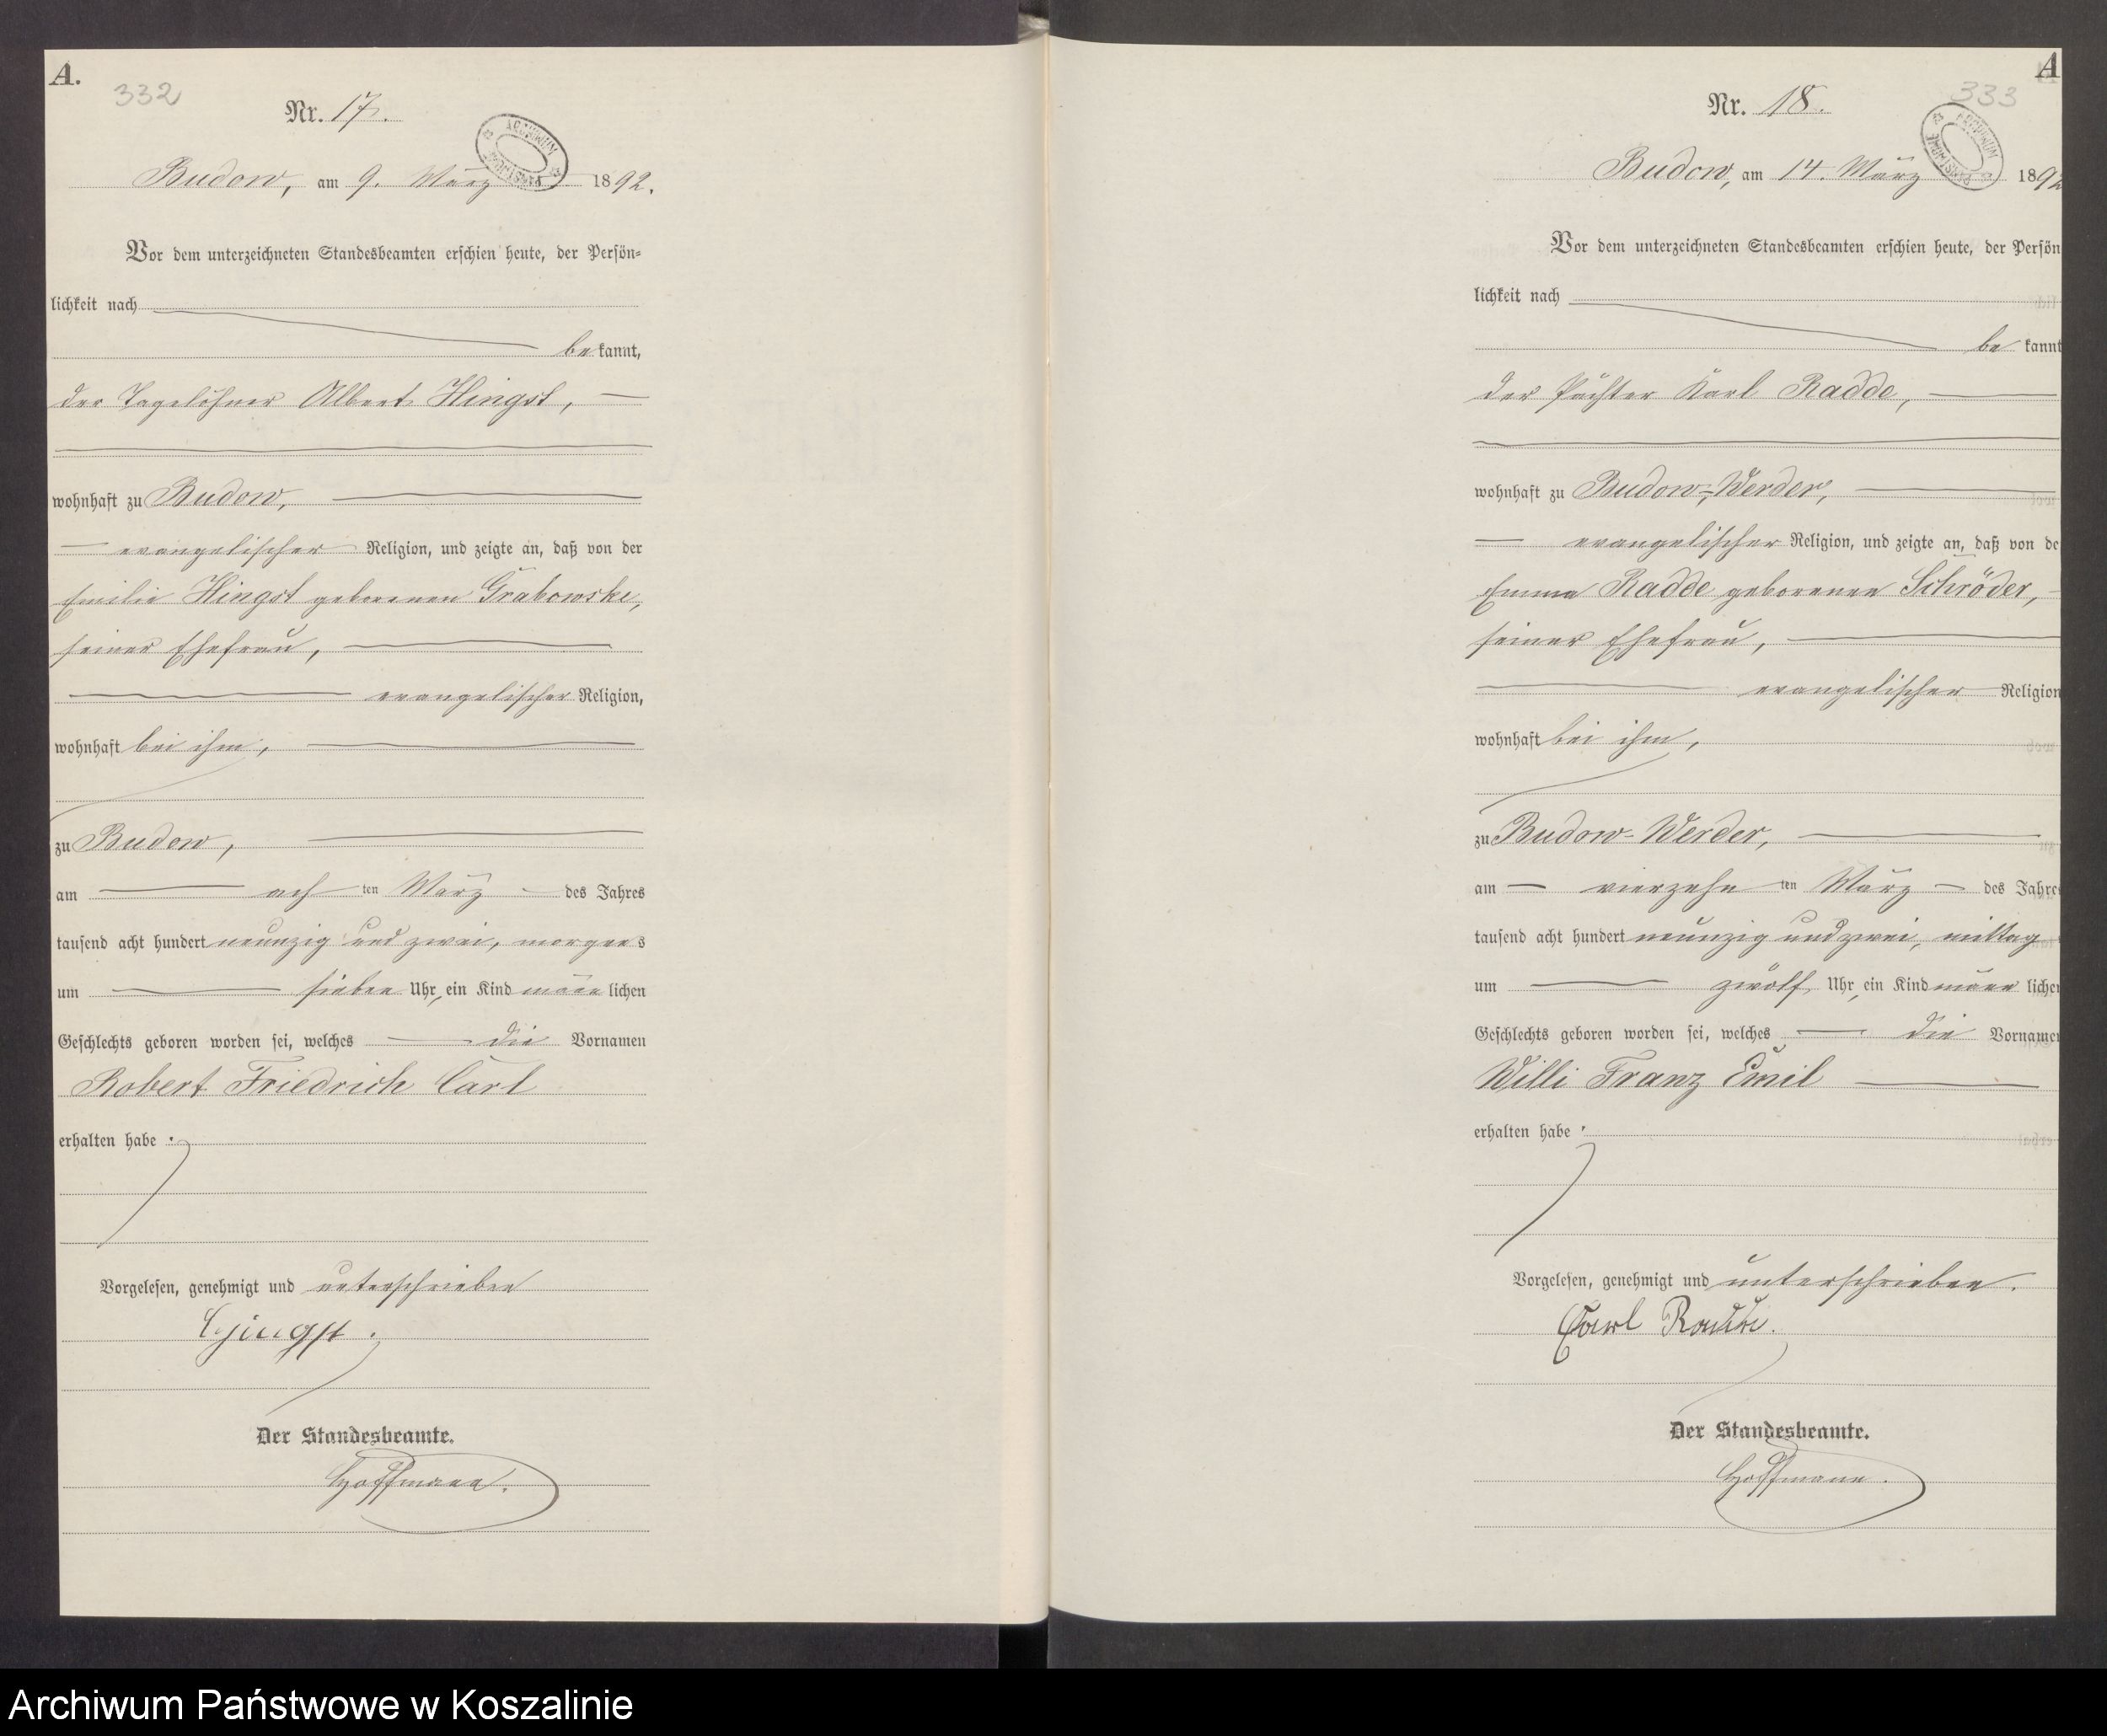 A.
332
Nr. 17.
ARCHIWUM PAŃSTWOWE
Budow, am 9. März 1892.
Vor dem unterzeichneten Standesbeamten erschien heute, der Persön-
lichkeit nach
be kannt,
der Tagelöhner Albert Hingst,
wohnhaft zu Budow,
evangelischer Religion, und zeigte an, daß von der
Emilie Hingst geborenen Grabowske,
seiner Ehefrau,
evangelischer Religion,
wohnhaft bei ihm,
zu Budow,
am ach ten März des Jahres
tausend acht hundert neunzig und zwei, morgens
um sieben Uhr, ein Kind männ lichen
Geschlechts geboren worden sei, welches die Vornamen
Robert Friedrich Carl
erhalten habe.
Vorgelesen, genehmigt und unterschrieben
Hingst.
Der Standesbeamte.
Hoffmann.
A
333
Nr. 18.
ARCHIWUM PAŃSTWOWE
Budow, am 14. März 1892
Vor dem unterzeichneten Standesbeamten erschien heute, der Persön
lichkeit nach
be kannt
der Pächter Karl Radde,
wohnhaft zu Budow-Werder,
evangelischer Religion, und zeigte an, daß von de
Emma Radde geborenen Schröder,
seiner Ehefrau,
evangelischer Religion
wohnhaft bei ihm,
zu Budow-Werder,
am vierzehn ten März des Jahre
tausend acht hundert neunzig und zwei, mittag
um zwölf Uhr, ein Kind männ liche
Geschlechts geboren worden sei, welches die Vorname
Willi Franz Emil
erhalten habe.
Vorgelesen, genehmigt und unterschrieben.
Carl Radde.
Der Standesbeamte.
Hoffmann.
Archiwum Państwowe w Koszalinie